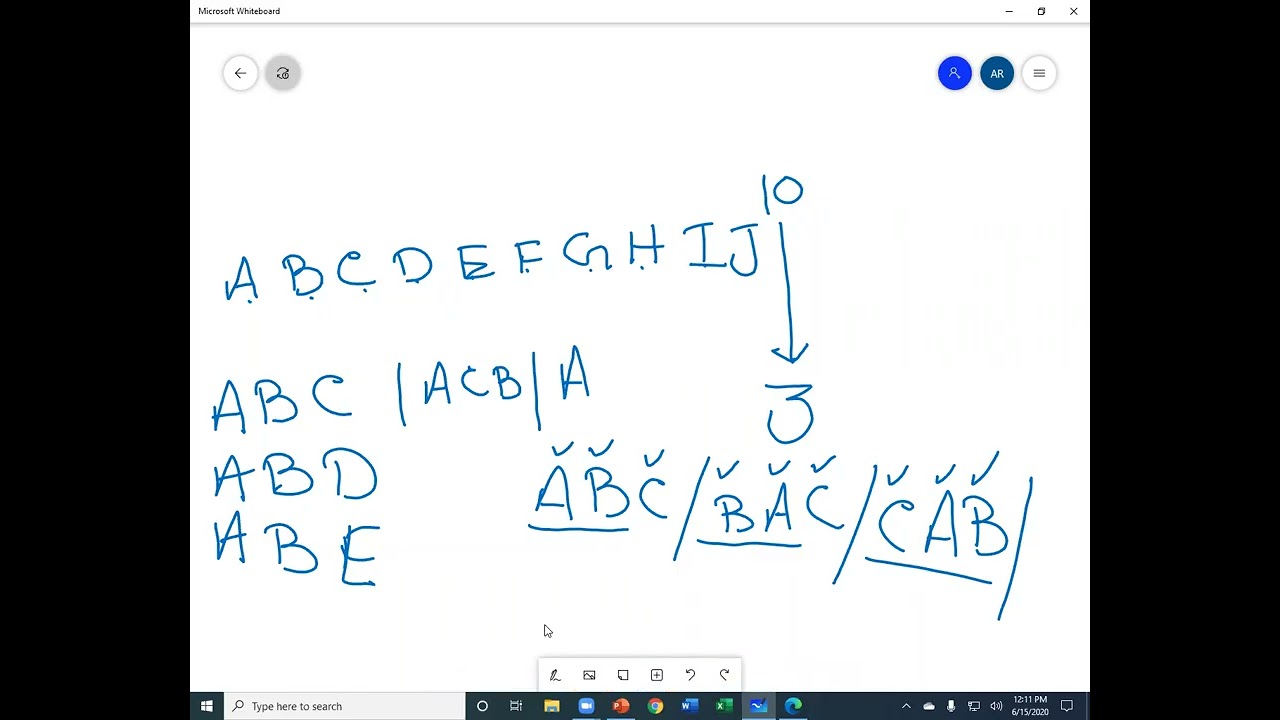 Microsoft Whiteboard
AR
10
A B C D E F G H I J
3
ABC | ACB | A
ABD
ABE
ABC / BAC / CAB /
Type here to search
12:11 PM
6/15/2020